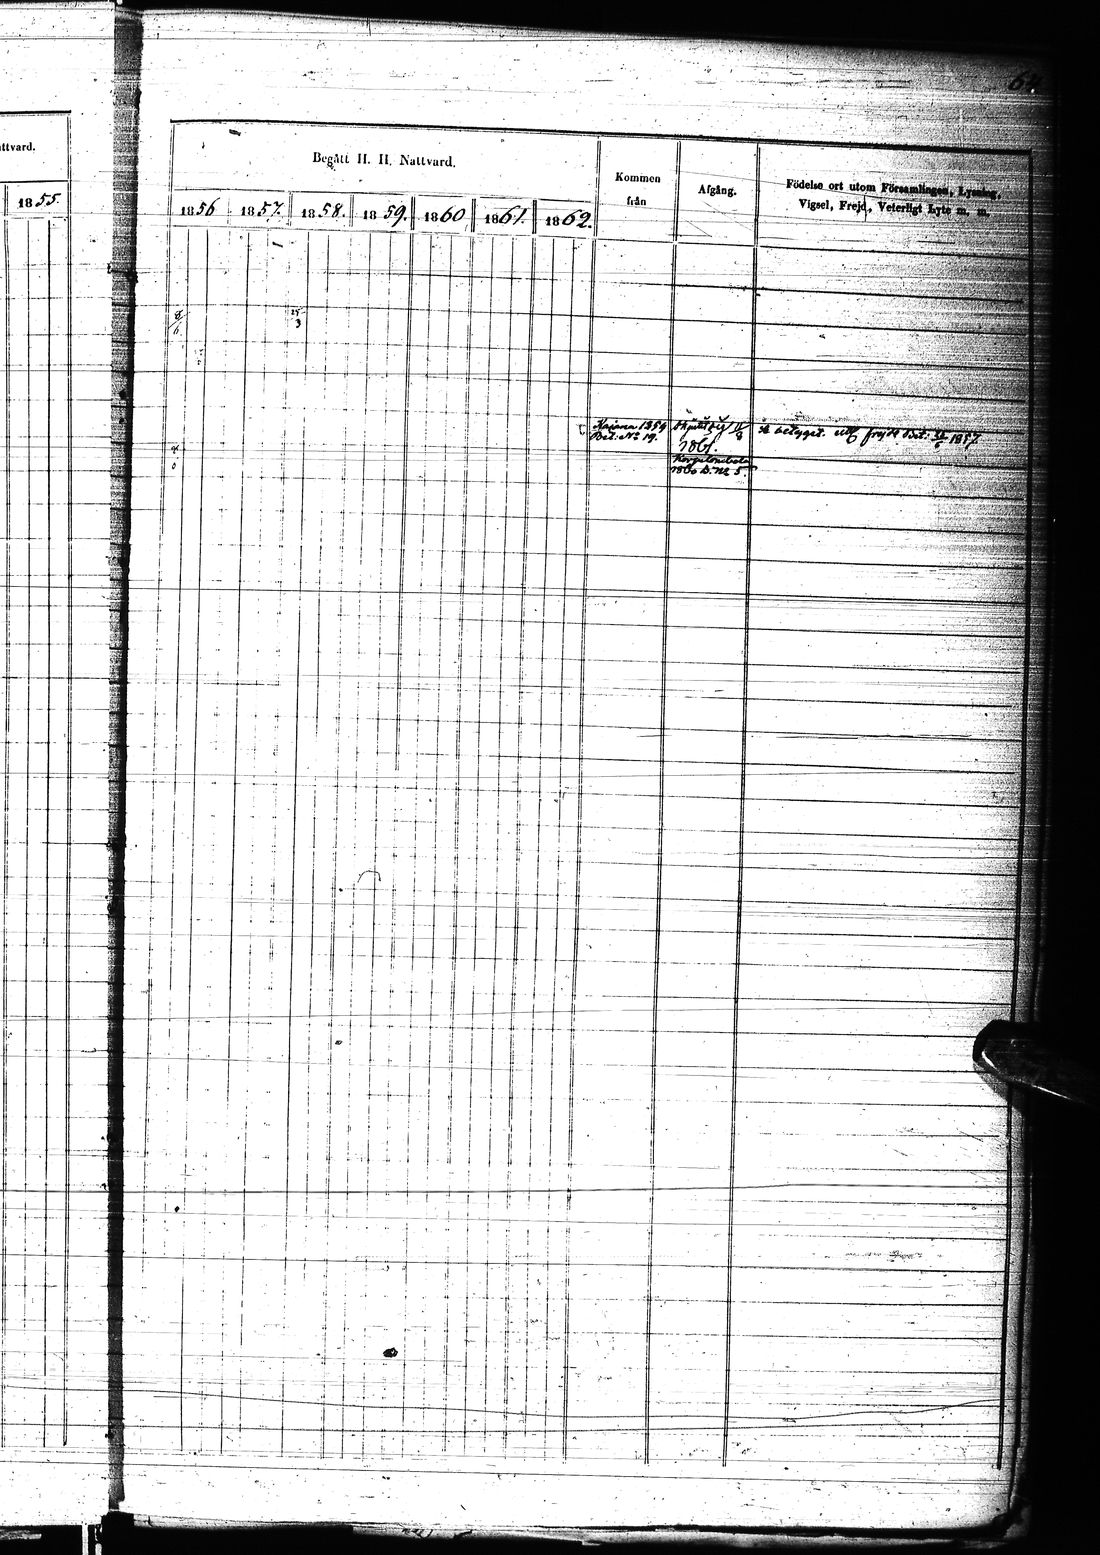 ttvard.
1855.
Begått H. H. Nattvard.
1856 1857. 1858. 1859. 1860 1861. 1862.
Kommen
från
Afgång.
Födelse ort utom Församlingen, Lysning,
Vigsel, Frejd, Veterligt Lyte m. m.
Kajana 1854
Bet: No 19.
betyget. frejd Bet: 1857
1860 B. No 5.